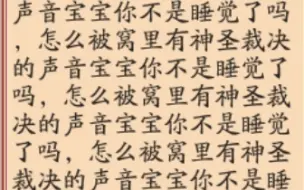 声音宝宝你不是睡觉了吗
，怎么被窝里有神圣裁决
的声音宝宝你不是睡觉了
吗，怎么被窝里有神圣裁
决的声音宝宝你不是睡觉
了吗，怎么被窝里有神圣
裁决的声音宝宝你不是睡